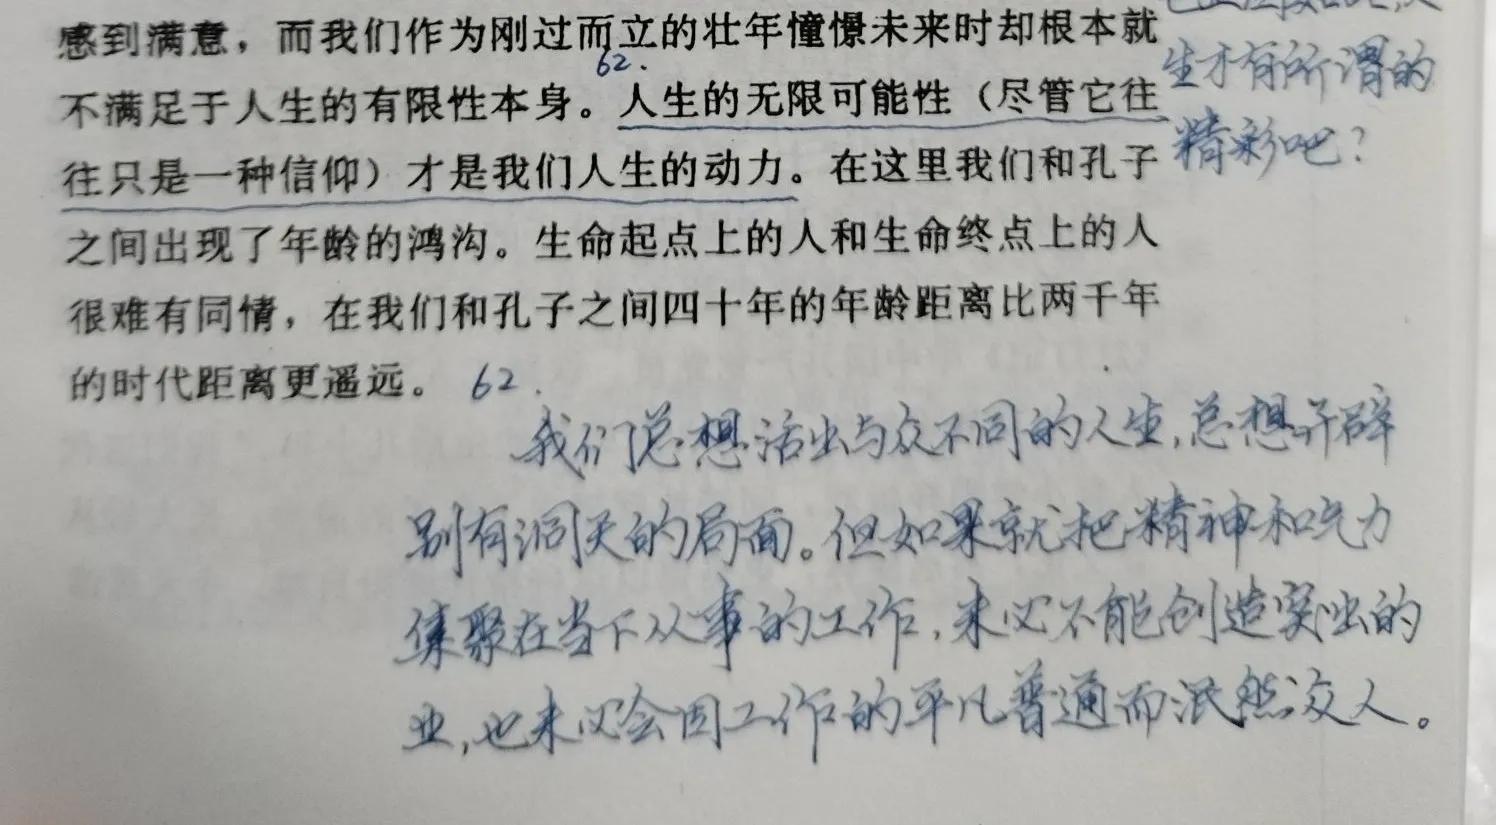 感到满意，而我们作为刚过而立的壮年憧憬未来时却根本就
62.
不满足于人生的有限性本身。人生的无限可能性（尽管它往
往只是一种信仰）才是我们人生的动力。在这里我们和孔子
之间出现了年龄的鸿沟。生命起点上的人和生命终点上的人
很难有同情，在我们和孔子之间四十年的年龄距离比两千年
的时代距离更遥远。 62.
生才有所谓的
精彩吧？
我们总想活出与众不同的人生，总想开辟
别有洞天的局面。但如果就把精神和气力
集聚在当下从事的工作，未必不能创造突出的
业，也未必会因工作的平凡普通而泯然众人。